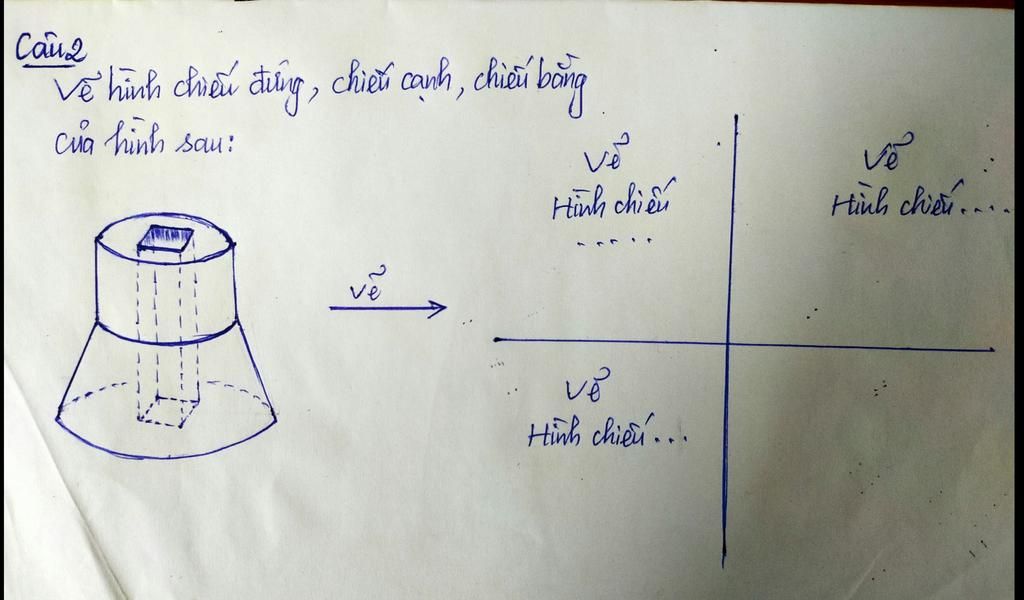 Câu 2
Vẽ hình chiếu đứng, chiếu cạnh, chiếu bằng
của hình sau:
Vẽ
Hình chiếu
.....
Vẽ
Hình chiếu....
vẽ
Vẽ
Hình chiếu...